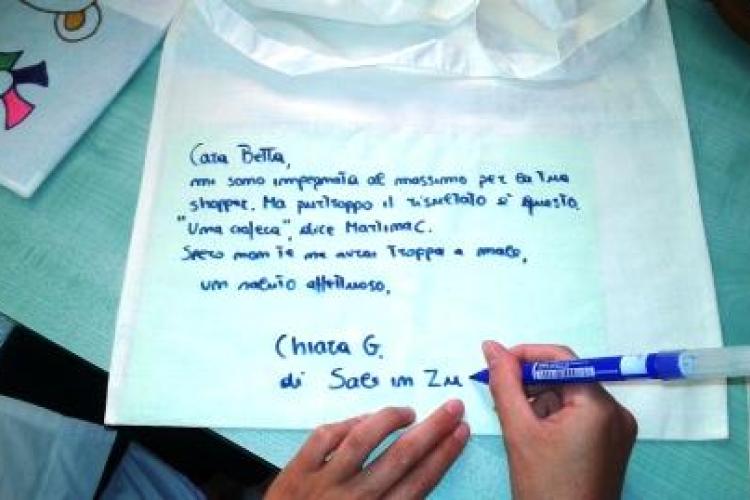 Cara Betta,
mi sono impegnata al massimo per la tua
shopper. Ma purtroppo il risultato è questo.
"Una ciofeca", dice Martina C.
Spero non te ne avrai troppo a male,
un saluto affettuoso,
Chiara G.
di Sale in Zu